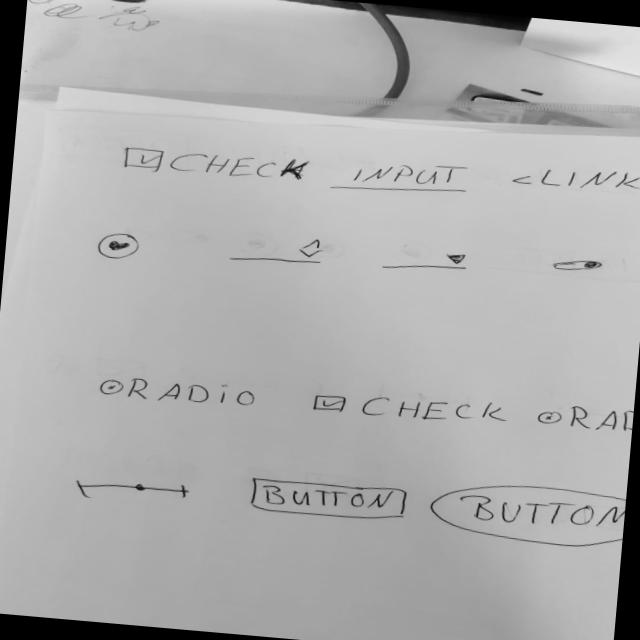 CHECK INPUT <LINK
RADIO CHECK RAD
BUTTON BUTTON